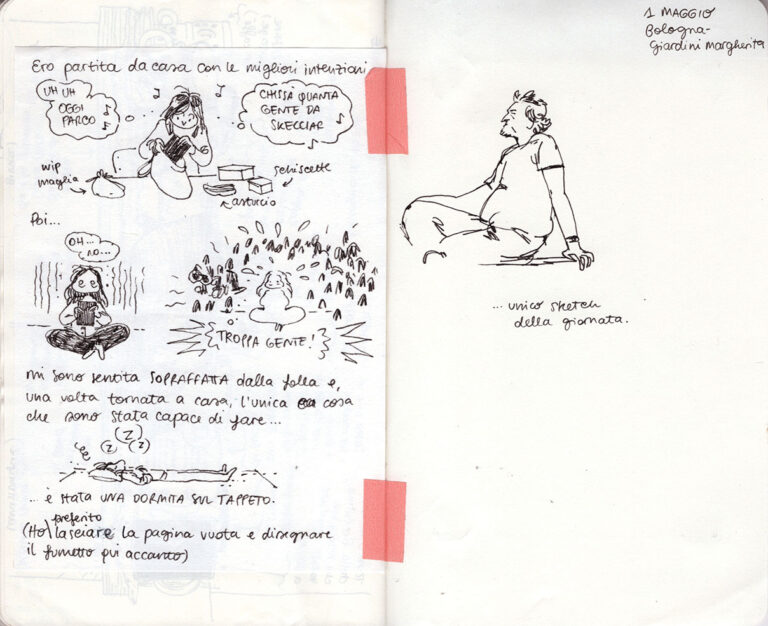 Ero partita da casa con le migliori intenzioni
UH UH
OGGI
PARCO
CHISSÀ QUANTA
GENTE DA
SKECCIAR
wip
maglia
schiscette
astuccio
Poi...
OH...
NO...
TROPPA GENTE!
mi sono sentita SOPRAFFATTA dalla folla e,
una volta tornata a casa, l'unica cosa
che sono stata capace di fare...
Z Z Z
... è stata UNA DORMITA SUL TAPPETO.
preferito
(Ho lasciare la pagina vuota e disegnare
il fumetto qui accanto)
1 MAGGIO
Bologna-
Giardini Margherita
... unico sketch
della giornata.